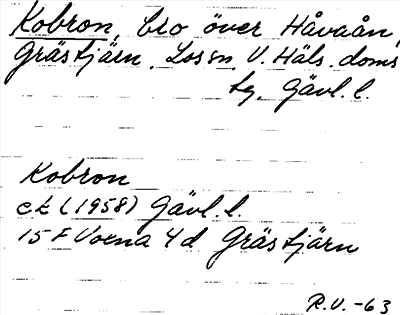 Kobron, bro över Håvaån,
Grästjärn, Los sn, V. Häls. doms
tg, Gävl. l.
Kobron
ek (1958) Gävl. l.
15 F Voxna 4 d Grästjärn
R.V. -63